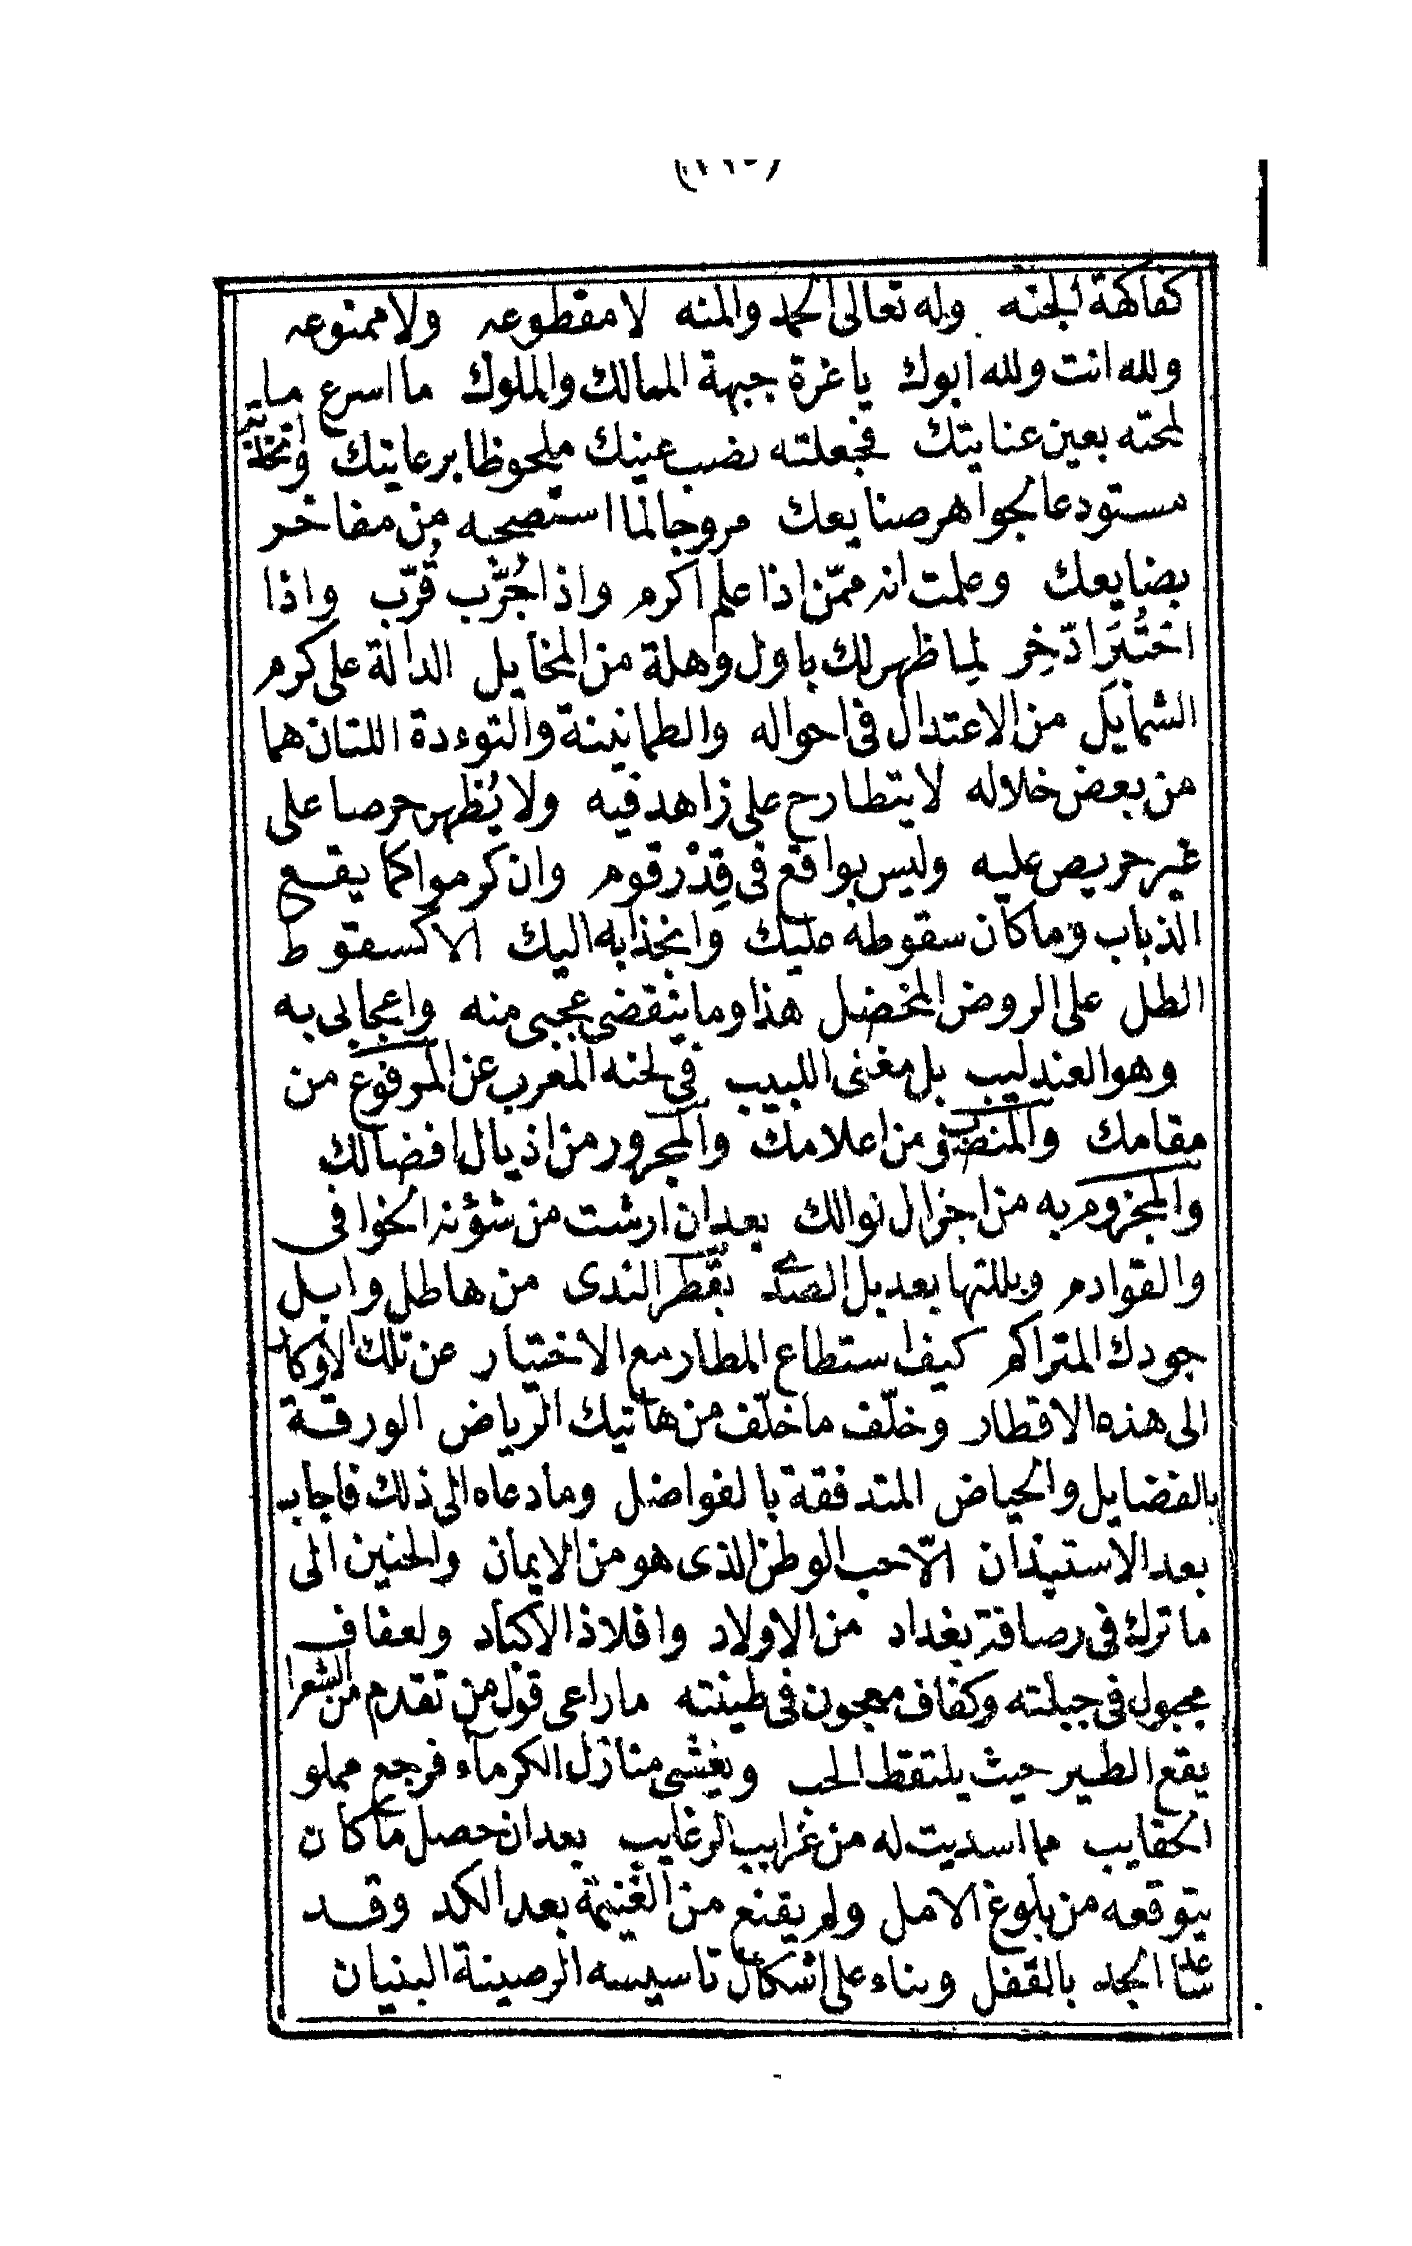 كفاكهة الجنه وله تعالى الحمد والمنه لا مقطوعه ولا ممنوعه
ولله انت ولله ابوك يا غرة جبهة الممالك والملوك ما اسرع ما
لمحته بعين عنايتك فجعلته نصب عينك ملحوظا برعايتك واتخذته
مستودعا لجواهر صنايعك مروجا لما استصحبه من مفاخر
بضايعك وعلمت انه ممّن اذا علم اكرم واذا جُرّب قُرّب واذا
اختُبر ادّخِر لما ظهر لك باول وهلة من المخايل الدالة على كرم
الشمايل من الاعتدال فى احواله والطمانينة والتوءدة اللتان هما
من بعض خلاله لا يتطارح على زاهد فيه ولا يُظهر حرصا على
غير حريص عليه وليس بواقع فى قِدْر قوم وان كرموا كما يقع
الذباب وما كان سقوطه عليك وانجذابه اليك الا كسقوط
الطل على الروض المخضل هذا وما ينقضى عجبى منه واعجابى به
وهو العندليب بل مغنى اللبيب فى لحنه المغرب عن المرفوع من
مقامك والمنصوب من اعلامك والمجرور من اذيال افضالك
والمجزوم به من اجزال نوالك بعد ان ارشت من شؤنه الخوافى
والقوادم وبللتها بعد بل الصدى بقطر الندى من هاطل وابل
جودك المتراكم كيف استطاع المطار مع الاختيار عن تلك الاوكار
الى هذه الاقطار وخلّف ما خلّف من هاتيك الرياض الورقة
بالفضايل والحياض المتدفقة بالفواضل وما دعاه الى ذلك فاجابه
بعد الاستيذان الّا حب الوطن الذى هو من الايمان والحنين الى
ما ترك فى رصافة بغداد من الاولاد وافلاذ الاكباد ولعفاف
مجبول فى جبلته وكفاف معجون فى طينته ما راعى قول من تقدم من الشعرا
يقع الطير حيث يلتقط الحب ويغشى منازل الكرمآء فرجع مملو
الحقايب مما اسديت له من غرايب الرغايب بعد ان حصل ما كان
يتوقعه من بلوغ الامل ولم يقنع من الغنيمة بعد الكد وقد
ساعد الجد بالقفل وبناء على اشكال تاسيسه الرصينة البنيان